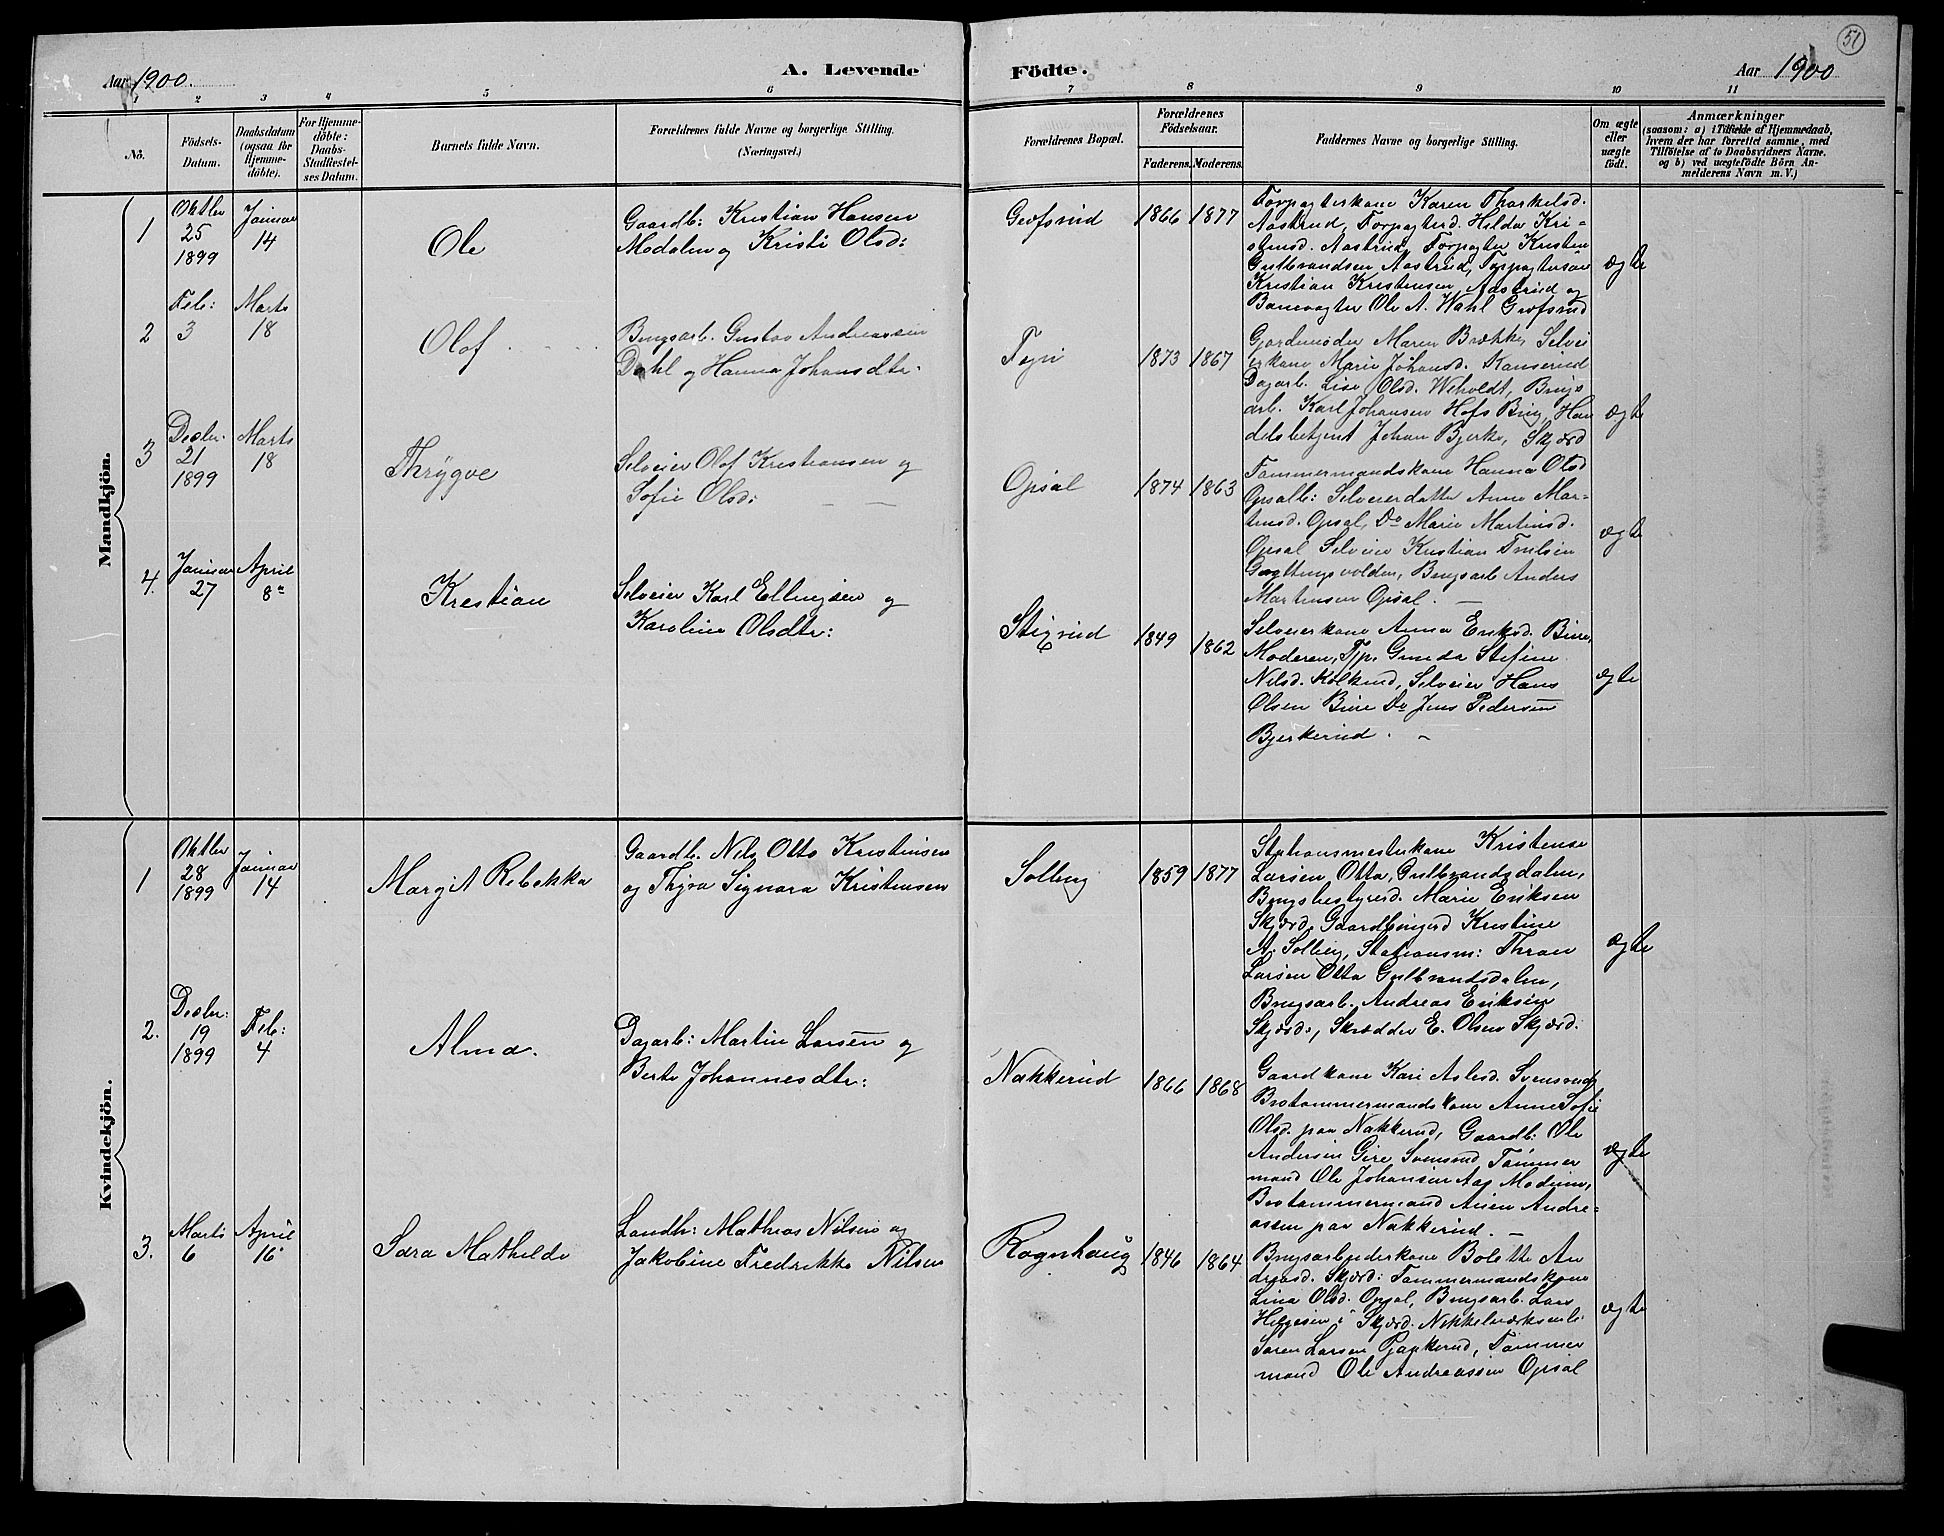 51
Aar 1900.
A. Levende
Födte.
Aar 1900
1 2 3 4 5 6 7 8 9 10 11
No.
Födsels-
Datum.
Daabsdatum
(ogsaa for
Hjemme-
döbte).
For Hjemme-
döbte:
Daabs-
Stadfæstel-
ses Datum.
Barnets fulde Navn.
Forældrenes fulde Navne og borgerlige Stilling.
(Næringsvei.)
Forældrenes Bopæl.
Forældrenes
Födselsaar.
Faderens. Moderens.
Faddernes Navne og borgerlige Stilling.
Om ægte
eller
uægte
födt.
Anmærkninger
(saasom: a) i Tilfælde af Hjemmedaab,
hvem der har forrettet samme, med
Tilföielse af to Daabsvidners Navne,
og b) ved uægtefödte Börn An-
melderens Navn m. V.)
Mandkjön.
1
Oktbr
25
1899
Januar
14
Ole
Gaardb: Kristian Hansen
Modalen og Kristi Olsd:
1866 1877
Forpagterkone Karen Tharkelsd.
Aastrud, Forpagterd. Hilda Kri-
stensd. Aastrud, Forpagter Kristen
Gulbrandsen Aastrud, Forpagtersøn
Kristian Kristensen, Aastrud og
Banevogter Ole A. Wahl
ægte
2
Feb:
3
Marts
18
Olof
Brugsarb. Gustav Andreassen
Dahl og Hanna Johansdtr.
1873 1867
Gjordemoder Maren Brække, Selvei
erkone Marie Johansd.
Dagarb. Lise Olsd. Weholdt, Brugs
arb. Karl Johansen Hofs Brug, Han
delsbetjent Johan Bjerke, Skjærd
ægte
3
Decbr.
21
1899
Marts
18
Thrygve
Selveier Olof Kristiansen og
Sofie Olsd:
Opsal
1874 1863
Tømmermandskone Hanna Olsd
Opsal: Selveierdatter Anne Mar-
tinsd. Opsal, Do Marie Martinsd.
Opsal Selveier Kristian
Brugsarb Anders
Martinsen Opsal.
ægte
4.
Januar
27
April
8
Krestian
Selveier Karl Ellingsen og
Karoline Olsdtr:
Stixrud
1849 1862
Selveierkone Anna Eriksd.
Moderen, Tjp. Gunda Stefine
Nilsd. Selveier Hans
Olsen Do Jens Pedersen
Bjerkerud.
ægte
Kvindekjön.
1
Oktbr
28
1899
Januar
14
Margit Rebekka
Gaardb. Nils Otto Kristensen
og Thyra Signora Kristensen
Solberg
1859 1877
Stationsmesterkone Kristense
Larsen Otta, Gulbrandsdalen,
Brugsbestyrerd. Marie Eriksen
Skjærd, Kristine
A. Solberg, Stationsm: Thron
Larsen Otta Gulbrandsdalen,
Brugsarb. Andreas Eriksen
Skjærd:, Skrædder E. Olsen Skjærd.
ægte
2.
Decbr:
19
1899
Feb:
4
Alma.
Dagarb: Martin Larsen og
Berte Johannesdtr:
Nakkerud
1866 1868
Gaardkone Kari Aslesd. Svensrud
Brotømmermandskone Anne Sofie
Olsd. paa Nakkerud, Gaardb: Ole
Andersen Svensrud Tømmer
mand Ole Johansen
Brotømmermand Andre-
assen paa Nakkerud.
ægte
3.
Marts
6
April
16
Sara Mathilde
Landh: Mathias Nilsen og
Jakobine Fredrikke Nilsen
Rognhaug
1846 1864
Brugsarbejderkone Bolette An
dreasd. Skjærd: Tømmermandskone
Lina Olsd. Opsal, Brugsarb. Lars
Helgesen i Skjærd. Nikkelværksarb:
Søren Larsen Tømmer
mand Ole Andreassen Opsal
ægte